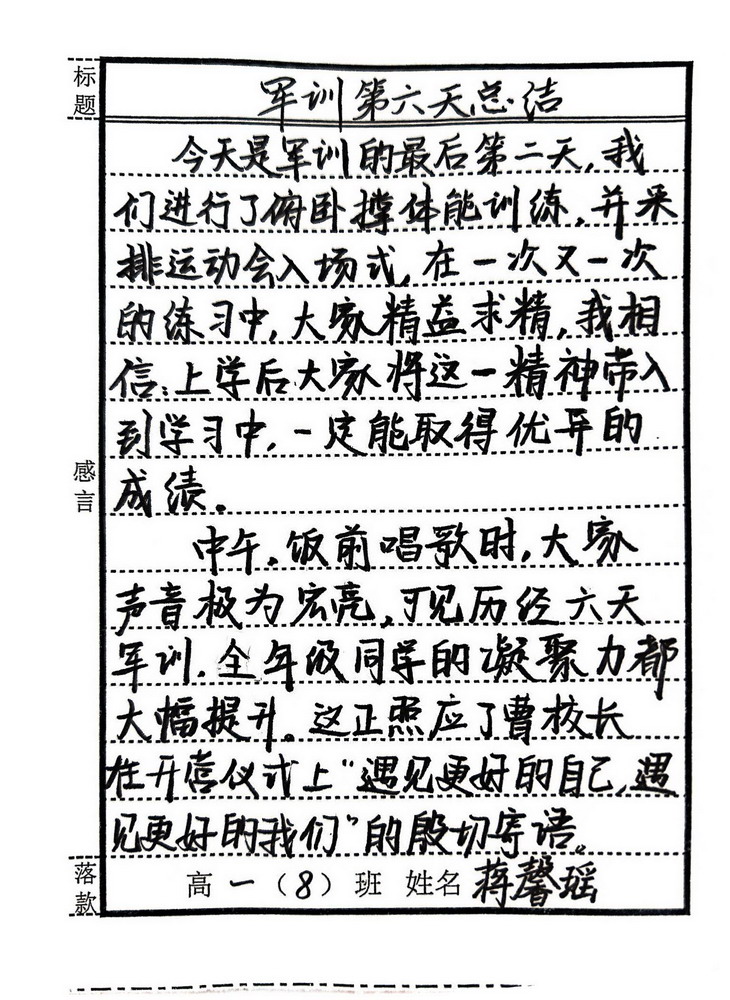 标题
军训第六天总结
今天是军训的最后第二天,我
们进行了俯卧撑体能训练,并采
排运动会入场式,在一次又一次
的练习中,大家精益求精,我相
信:上学后大家将这一精神带入
到学习中,一定能取得优异的
成绩。
感言
中午,饭前唱歌时,大家
声音极为宏亮,可见历经六天
军训,全年级同学的凝聚力都
大幅提升。这正照应了曹校长
在开营仪式上“遇见更好的自己,遇
见更好的我们”的殷切寄语。
落款
高一(8)班 姓名 蒋馨瑶